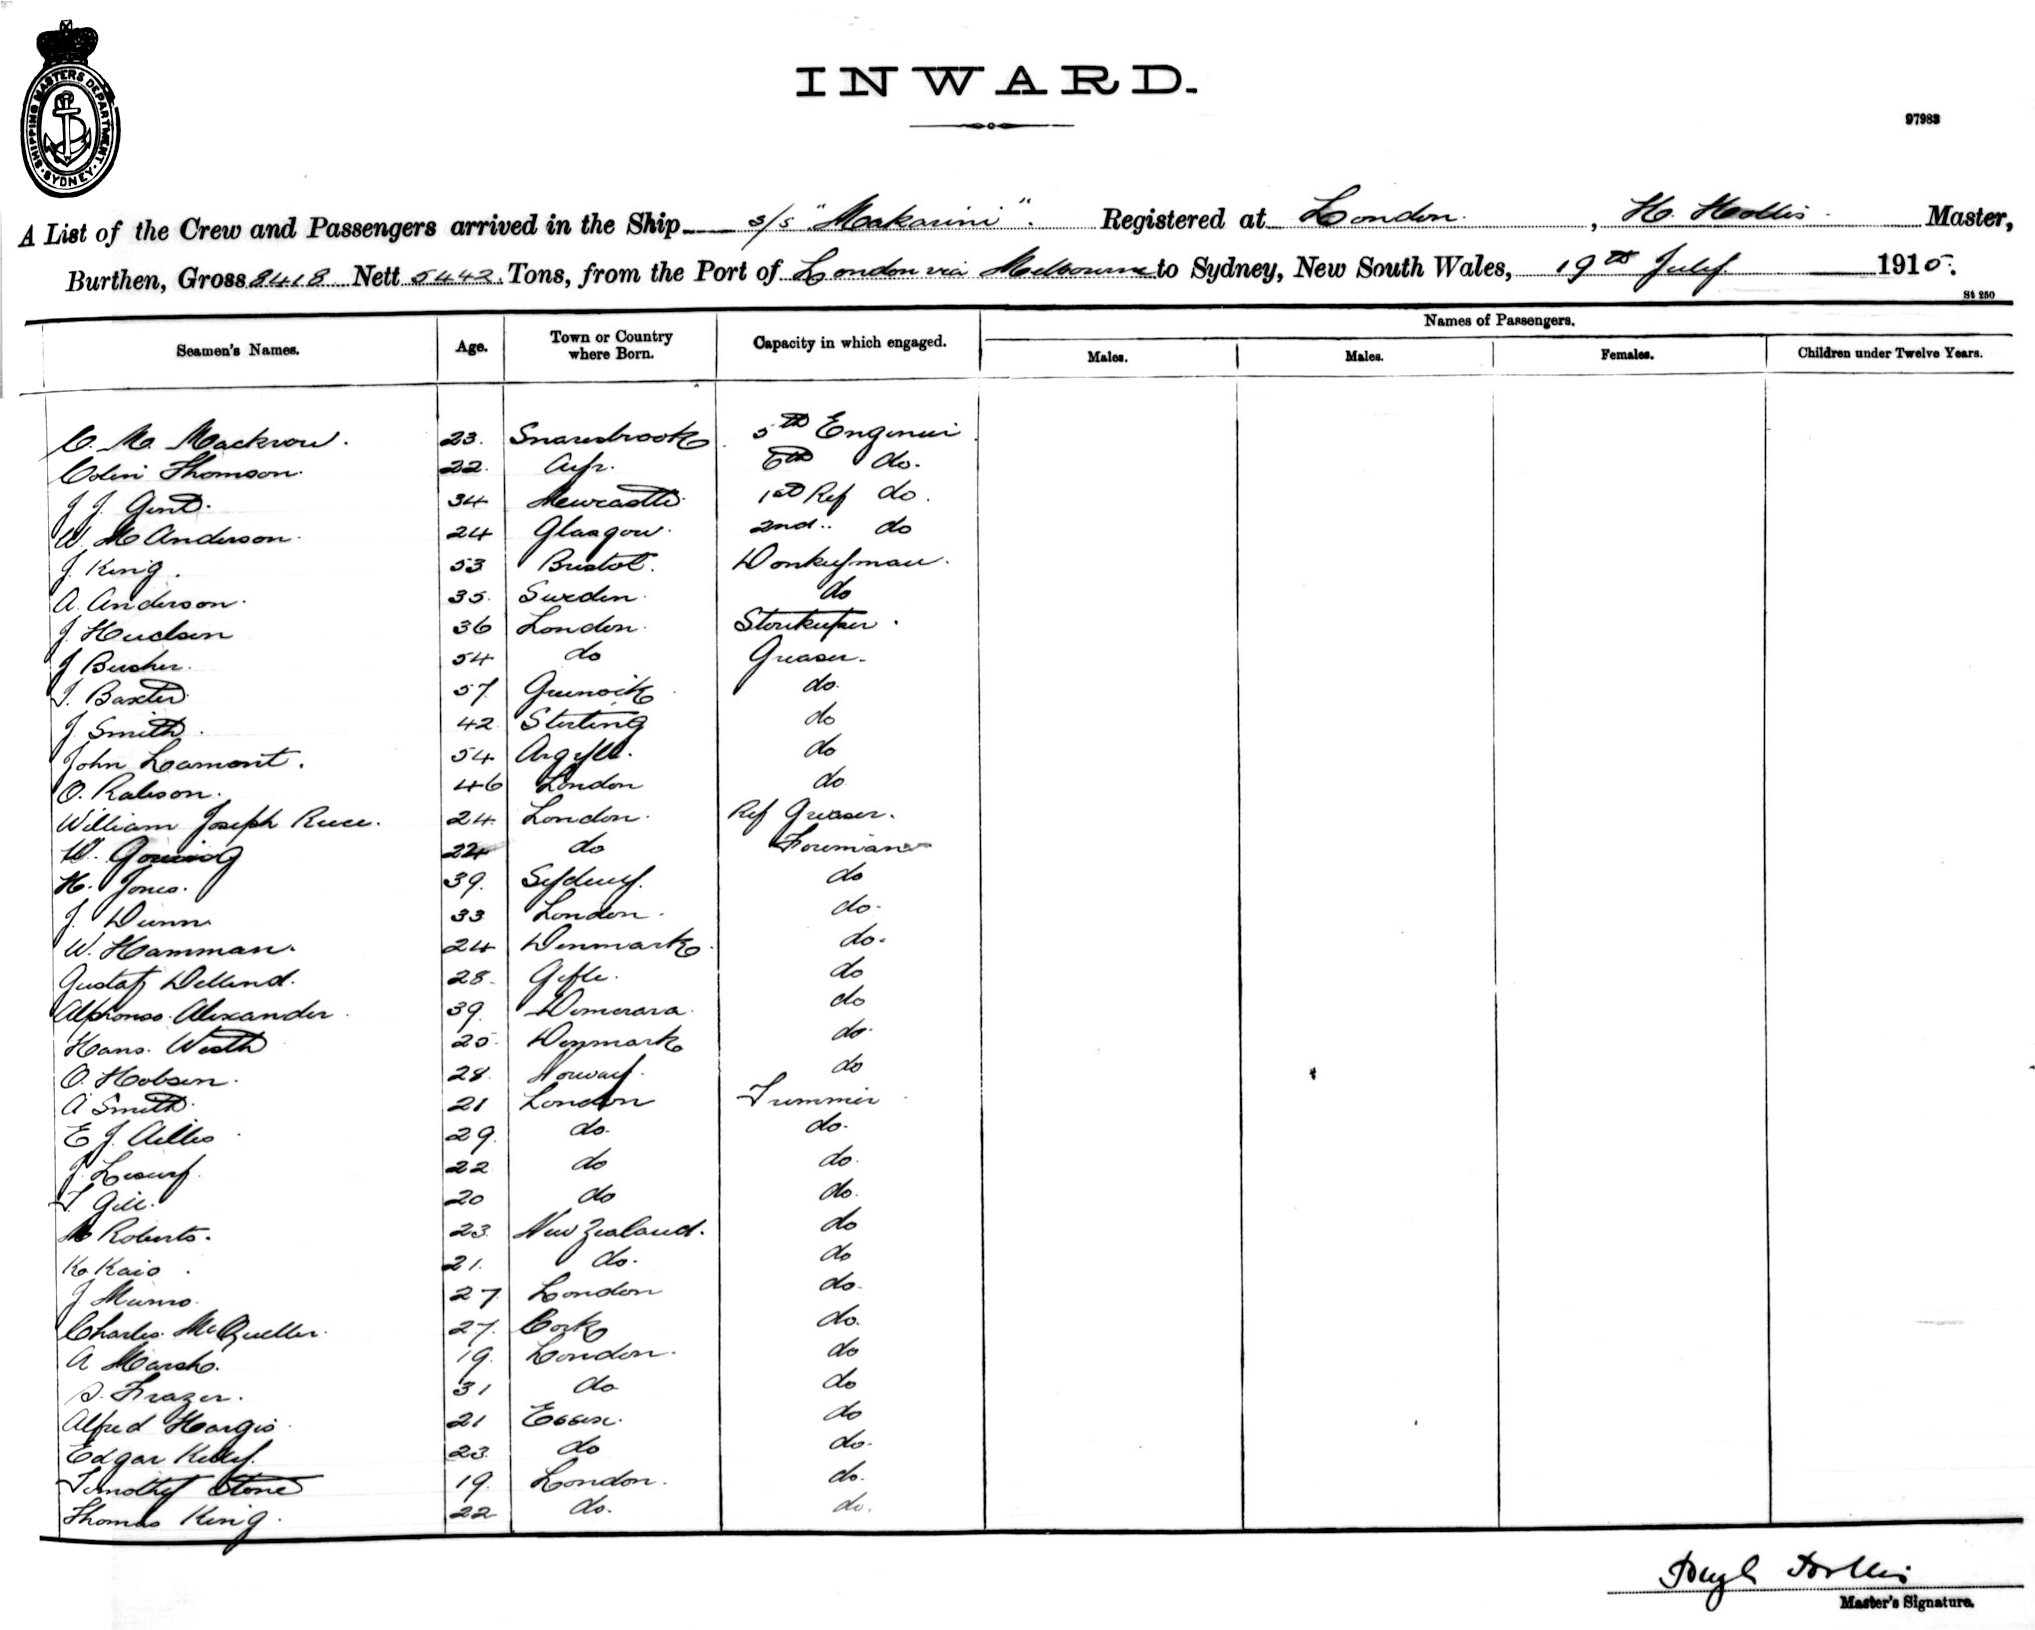 SHIPPING MASTERS DEPARTMENT. SYDNEY.
INWARD.
97983
A List of the Crew and Passengers arrived in the Ship s/s "Makarini". Registered at London. , H. Hollis. Master,
Burthen, Gross 8418 Nett 5442 Tons, from the Port of London via Melbourne to Sydney, New South Wales, 19th July 1915.
St 250
Seamen's Names. Age. Town or Country where Born. Capacity in which engaged. Names of Passengers.
Males. Males. Females. Children under Twelve Years.
C. M. Mackrow. 23. Snaresbrook 5th Engineer
Colin Thomson. 22. Ayr. 6th do.
J. J. Gent. 34 Newcastle 1st Ref do.
W. M Anderson. 24 Glasgow. 2nd " do
J. King. 53 Bristol. Donkeyman.
A. Anderson. 35. Sweden. do
J. Hudson 36 London. Storekeeper.
J Busher. 54 do Greaser.
T. Baxter 57. Greenock do.
J. Smith. 42 Sterling do
John Lamont. 54 Argyll. do
O. Ralison. 46 London do
William Joseph Reece. 24. London. Ref Greaser.
W. 24 do Foreman
H. Jones. 39. Sydney. do
J. Dunn. 33 London. do.
W. Hamman. 24 Denmark. do.
Gustaf Dellend. 28. Gefle. do
Alphonso Alexander. 39. Demerara. do
Hans. Westh 25. Denmark do.
O. Hobsen. 28. Norway. do
A Smith. 21 London Trimmer
E J. Aillis. 29. do. do.
J. Lesurf. 22 do do.
T. Gill. 20 do do.
M Roberts. 23. New Zealand. do
K. Kaio. 21. do. do
J Munro. 27. London do.
Charles. McQueller. 27. Cork do.
A Marsh. 19. London. do
S. Frazer. 31 do do
Alfred Hargis. 21 Essex. do
Edgar Kelly. 23. do do.
Timothy Stone 19. London. do.
Thomas King. 22 do. do.
Hugh Hollis
Master's Signature.